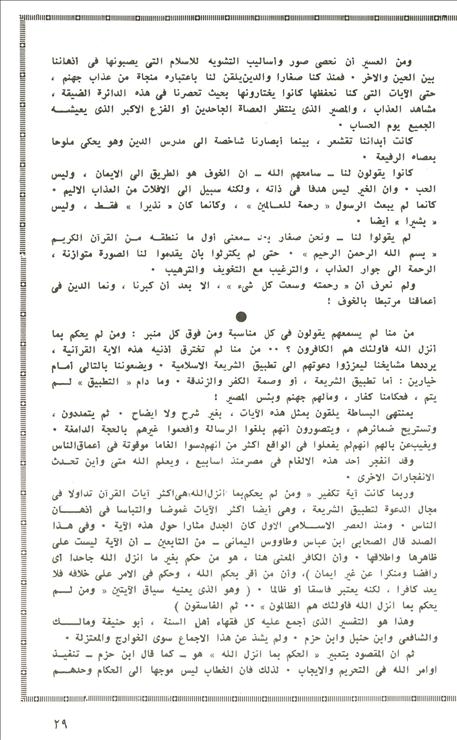 ومن العسير أن نحصى صور وأساليب التشويه للاسلام التى يصبونها فى أذهاننا
بين الحين والآخر • فمنذ كنا صغارا والدين يلقن لنا باعتباره منجاة من عذاب جهنم ،
حتى الآيات التى كنا نحفظها كانوا يختارونها بحيث تحصرنا فى هذه الدائرة الضيقة ،
مشاهد العذاب ، والمصير الذى ينتظر العصاة الجاحدين أو الفزع الاكبر الذى يعيشه
الجميع يوم الحساب •
كانت أبداننا تقشعر ، بينما أبصارنا شاخصة الى مدرس الدين وهو يحكى ملوحا
بعصاه الرفيعة •
كانوا يقولون لنا ــ سامحهم الله ــ ان الخوف هو الطريق الى الايمان ، وليس
الحب • وان الخير ليس هدفا فى ذاته ، ولكنه سبيل الى الافلات من العذاب الاليم •
كانما لم يبعث الرسول « رحمة للعالمين » ، وكانما كان « نذيرا » فقط ، وليس
« بشيرا » أيضا •
لم يقولوا لنا ــ ونحن صغار بعد ــ معنى أول ما ننطقه من القرآن الكريم
« بسم الله الرحمن الرحيم » • حتى لم يكترثوا بأن يقدموا لنا الصورة متوازنة ،
الرحمة الى جوار العذاب ، والترغيب مع التخويف والترهيب •
ولم نعرف أن « رحمته وسعت كل شىء » ، الا بعد أن كبرنا ، ونما الدين فى
أعماقنا مرتبطا بالخوف !
●
من منا لم يسمعهم يقولون فى كل مناسبة ومن فوق كل منبر : ومن لم يحكم بما
أنزل الله فأولئك هم الكافرون ؟ •• من منا لم تخترق أذنيه هذه الآية القرآنية ،
يرددها مشايخنا ليعززوا دعوتهم الى تطبيق الشريعة الاسلامية • ويضعوننا بالتالى أمام
خيارين : أما تطبيق الشريعة ، أو وصمة الكفر والزندقة • وما دام « التطبيق » لم
يتم ، فحكامنا كفار ، ومآلهم جهنم وبئس المصير !
بمنتهى البساطة يلقون بمثل هذه الآيات ، بغير شرح ولا ايضاح • ثم يتمددون ،
وتستريح ضمائرهم ، ويتصورون أنهم بلغوا الرسالة وأفحموا غيرهم بالحجة الدامغة •
ويغيب عن بالهم انهم لم يفعلوا فى الواقع اكثر من انهم دسوا الغاما موقوتة فى أعماق الناس
وقد انفجر أحد هذه الالغام فى مصر منذ اسابيع ، ويعلم الله متى وأين تحدث
الانفجارات الاخرى •
وربما كانت آية تكفير « ومن لم يحكم بما انزل الله » هى اكثر آيات القرآن تداولا فى
مجال الدعوة لتطبيق الشريعة ، وهى أيضا أكثر الآيات غموضا والتباسا فى أذهان
الناس • ومنذ العصر الاسلامى الاول كان الجدل مثارا حول هذه الآية • وفى هذا
الصدد قال الصحابى ابن عباس وطاووس اليمانى ــ من التابعين ــ أن الآية ليست على
ظاهرها واطلاقها • وأن الكافر المعنى هنا ، هو من حكم بغير ما انزل الله جاحدا أى
رافضا ومنكرا عن غير ايمان )، وأن من أقر بحكم الله ، وحكم فى الامر على خلافه فلا
يعد كافرا ، لكنه يعتبر فاسقا أو ظالما • ( وهو الذى يعنيه سياق الآيتين « ومن لم
يحكم بما انزل الله فأولئك هم الظالمون » •• ثم الفاسقون )
وهذا هو التفسير الذى أجمع عليه كل فقهاء أهل السنة ، أبو حنيفة ومالك
والشافعى وابن حنبل وابن حزم • ولم يشذ عن هذا الاجماع سوى الخوارج والمعتزلة •
ثم ان المقصود بتعبير « الحكم بما انزل الله » هو ــ كما قال ابن حزم ــ تنفيذ
أوامر الله فى التحريم والايجاب • لذلك فان الخطاب ليس موجها الى الحكام وحدهم
٢٩